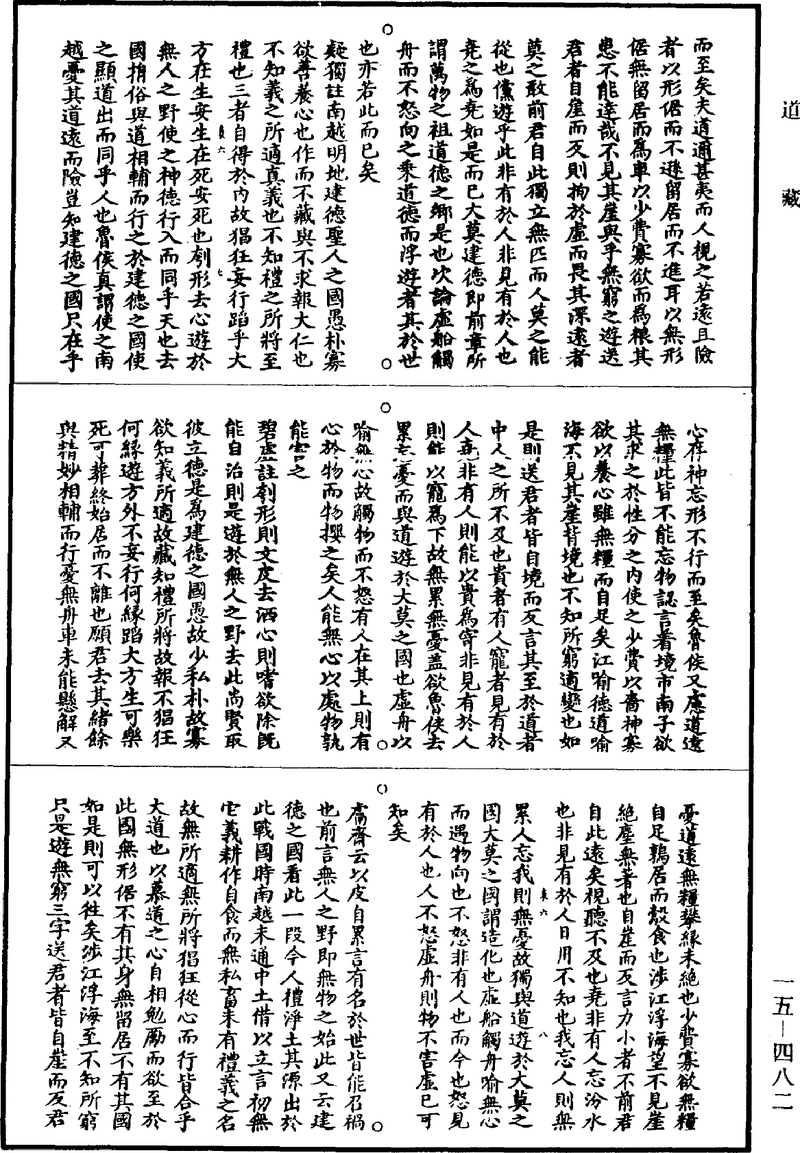 道藏
而至矣夫道通甚夷而人視之若遠且險
者以形倨而不遜留居而不進耳以無形
倨無留居而爲車以少費寡欲而爲糧其
患不能達哉不見其崖與乎無窮之遊送
君者自崖而反則拘於虛而畏其深遠者
莫之敢前君自此獨立無匹而人莫之能
從也儻遊乎此非有於人非見有於人也
堯之爲堯如是而已大莫建德即前章所
謂萬物之祖道德之鄉是也次論虛船觸
舟而不怒向之乘道德而浮遊者其於世
也亦若此而已矣
疑獨註南越明地建德聖人之國愚朴寡
欲善養心也作而不藏與不求報大仁也
不知義之所適真義也不知禮之所將至
禮也三者自得於內故猖狂妄行蹈乎大
方在生安生在死安死也刳形去心遊於
無人之野使之神德行入而同乎天也去
國捐俗與道相輔而行之於建德之國使
之顯道出而同乎人也魯侯真謂使之南
越憂其道遠而險豈知建德之國只在乎
心存神忘形不行而至矣魯侯又慮道遠
無糧此皆不能忘物認言著境市南子欲
其求之於性分之內使之少費以嗇神寡
欲以養心雖無糧而自足矣江喻德道喻
海不見其崖背境也不知所窮適變也如
是則送君者皆自境而反言其至於道者
中人之所不及也貴者有人寵者見有於
人堯非有人則能以貴爲寄非見有於人
則能以寵爲下故無累無憂蓋欲魯侯去
累忘憂而與道遊於大莫之國也虛舟以
喻無心故觸物而不怒有人在其上則有
心於物而物攖之矣人能無心以處物孰
能害之
碧虛註刳形則文皮去洒心則嗜欲除既
能自治則是遊於無人之野去此尚賢取
彼立德是爲建德之國愚故少私朴故寡
欲知義所適故藏知禮所將故報不猖狂
何緣遊方外不妄行何緣蹈大方生可樂
死可葬終始居而不離也願君去其緒餘
與精妙相輔而行憂無舟車未能懸解又
憂道遠無糧攀緣未絕也少費寡欲無糧
自足鶉居而鷇食也涉江浮海望不見崖
絕塵無著也自崖而反言力小者不前君
自此遠矣視聽不及也堯非有人忘汾水
也非見有於人日用不知也我忘人則無
累人忘我則無憂故獨與道遊於大莫之
國大莫之國謂造化也虛船觸舟喻無心
而遇物向也不怒非有人也而今也怒見
有於人也人不怒虛舟則物不害虛已可
知矣
鬳齋云以皮自累言有名於世皆能召禍
也前言無人之野即無物之始此又云建
德之國看此一段今人禮淨土其源出於
此戰國時南越未通中土借以立言初無
它義耕作自食而無私畜未有禮義之名
故無所適無所將猖狂從心而行皆合乎
大道也以慕道之心自相勉勵而欲至於
此國無形倨不有其身無留居不有其國
如是則可以往矣涉江浮海至不知所窮
只是遊無窮三字送君者皆自崖而反君
一五—四八二